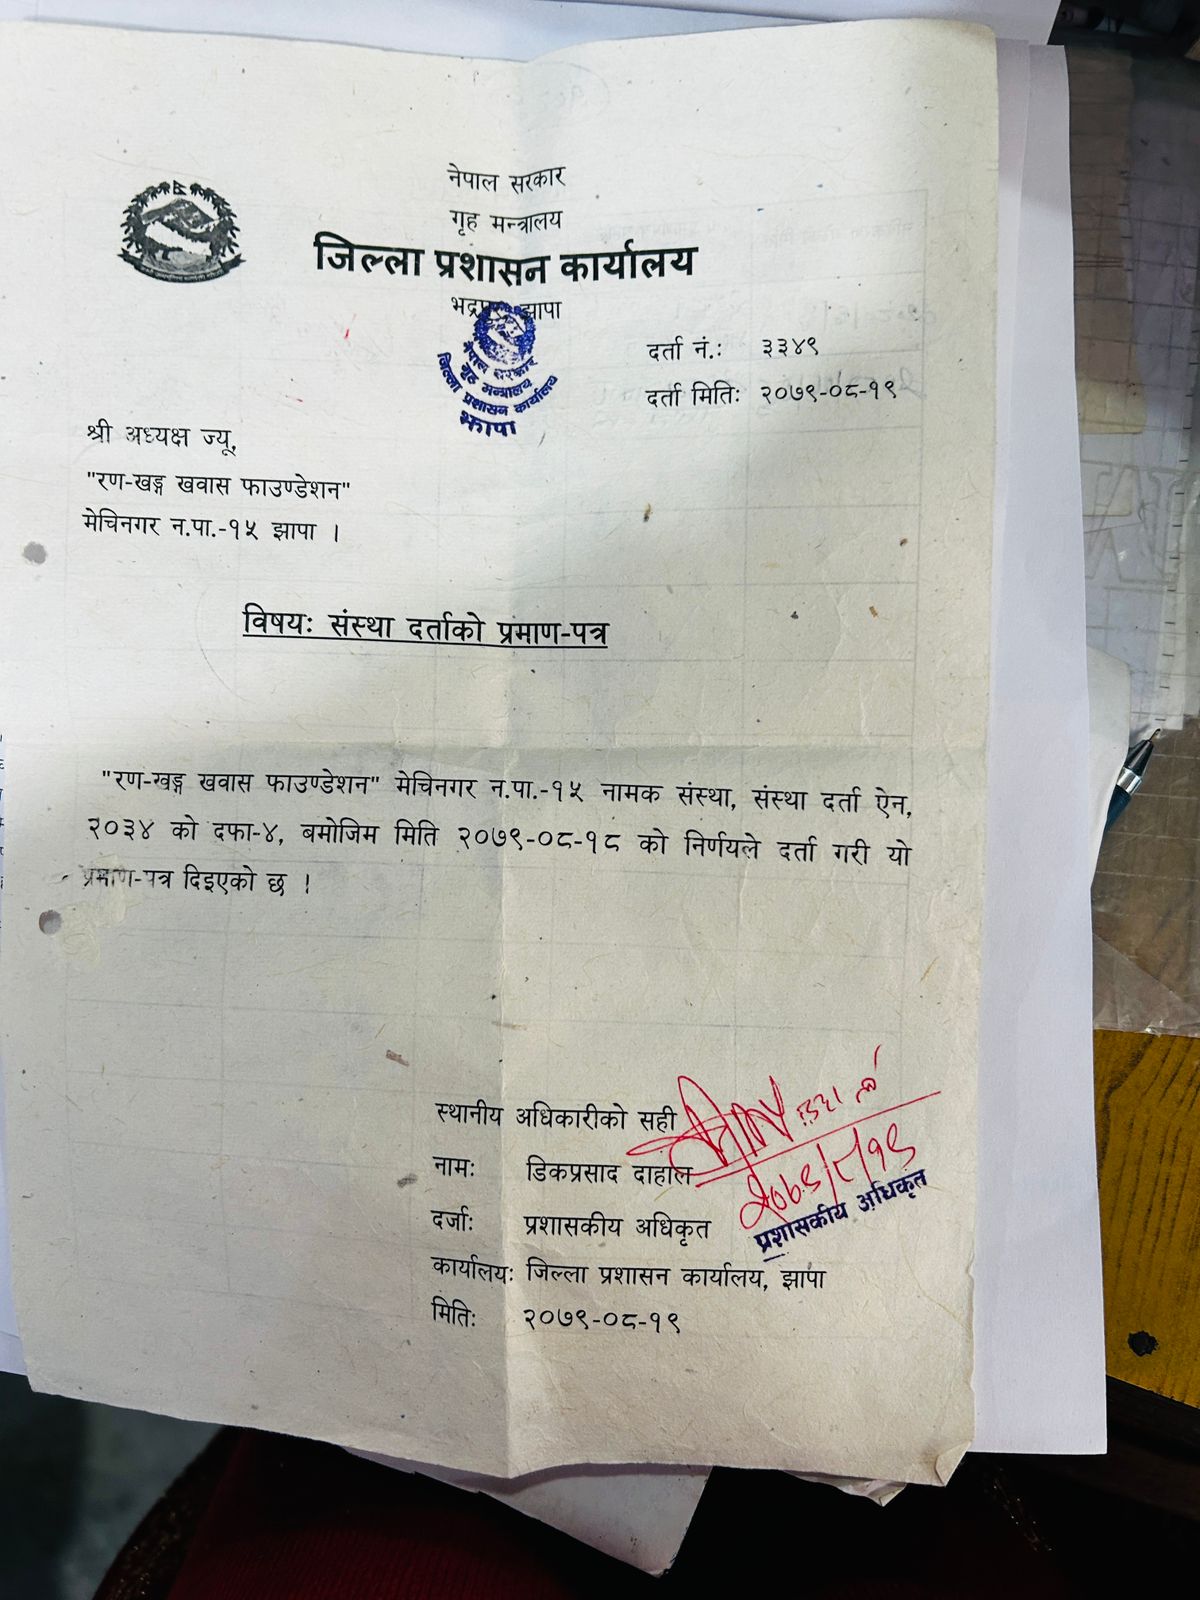 नेपाल सरकार
गृह मन्त्रालय
जिल्ला प्रशासन कार्यालय
भद्रपुर, झापा
नेपाल सरकार
गृह मन्त्रालय
जिल्ला प्रशासन कार्यालय
झापा
दर्ता नं.: ३३४९
दर्ता मितिः २०७९-०८-१९
श्री अध्यक्ष ज्यू,
"रण-खड्ग खवास फाउण्डेशन"
मेचिनगर न.पा.-१५ झापा ।
विषयः संस्था दर्ताको प्रमाण-पत्र
"रण-खड्ग खवास फाउण्डेशन" मेचिनगर न.पा.-१५ नामक संस्था, संस्था दर्ता ऐन,
२०३४ को दफा-४, बमोजिम मिति २०७९-०८-१८ को निर्णयले दर्ता गरी यो
प्रमाण-पत्र दिइएको छ ।
स्थानीय अधिकारीको सही
नामः डिकप्रसाद दाहाल
२०७९/८/१९
प्रशासकीय अधिकृत
दर्जाः प्रशासकीय अधिकृत
कार्यालयः जिल्ला प्रशासन कार्यालय, झापा
मितिः २०७९-०८-१९